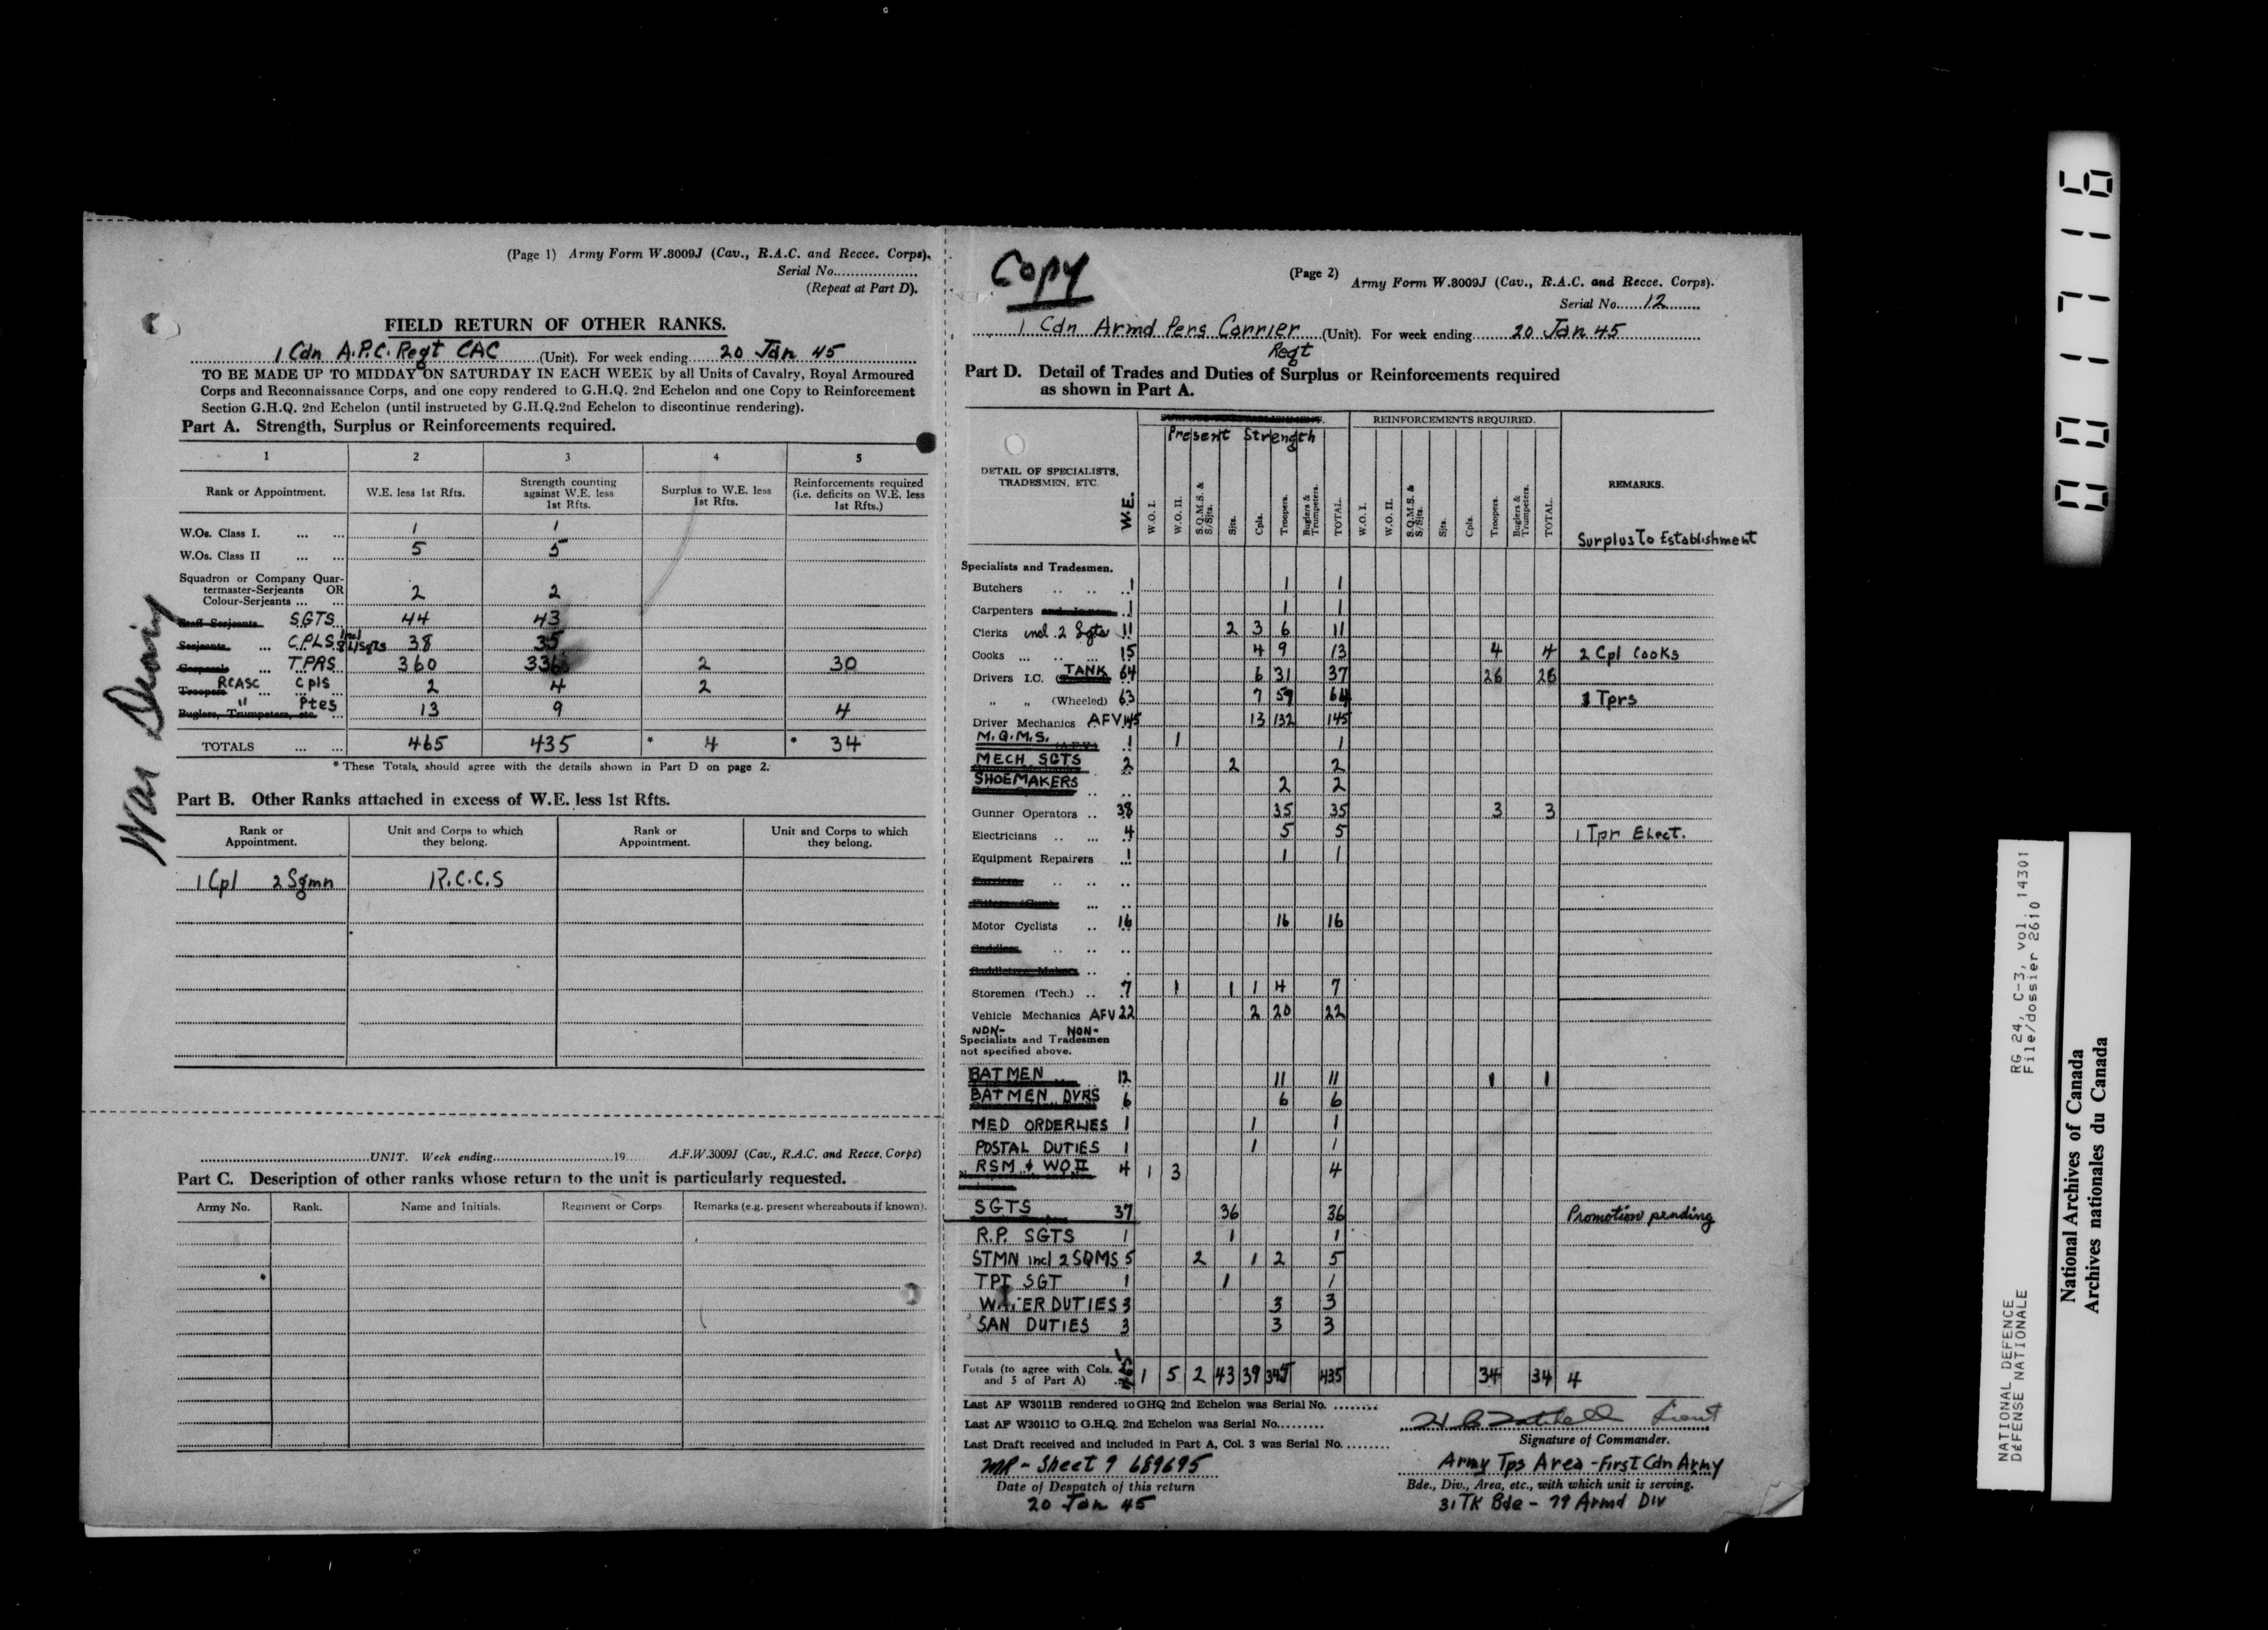 (Page 1) Army Form W.3009J (Cav., R.A.C. and Recce. Corps).
Serial No..................
(Repeat at Part D).
FIELD RETURN OF OTHER RANKS.
1 Cdn A.P.C. Regt CAC (Unit). For week ending 20 Jan 45
TO BE MADE UP TO MIDDAY ON SATURDAY IN EACH WEEK by all Units of Cavalry, Royal Armoured
Corps and Reconnaissance Corps, and one copy rendered to G.H.Q. 2nd Echelon and one Copy to Reinforcement
Section G.H.Q. 2nd Echelon (until instructed by G.H.Q.2nd Echelon to discontinue rendering).
Part A. Strength, Surplus or Reinforcements required.
1 2 3 4 5
Rank or Appointment. W.E. less 1st Rfts. Strength counting against W.E. less 1st Rfts. Surplus to W.E. less 1st Rfts. Reinforcements required (i.e. deficits on W.E. less 1st Rfts.)
W.Os. Class I. ... ... 1 1
W.Os. Class II ... ... 5 5
Squadron or Company Quar-
termaster-Serjeants OR
Colour-Serjeants ... ... 2 2
Staff Serjeants SGTS 44 43
Serjeants ... CPLS 38 35
Corporals ... TPRS 360 336 2 30
Troopers RCASC Cpls 2 4 2
Buglers, Trumpeters, etc. " Ptes 13 9 4
TOTALS ... ... 465 435 * 4 * 34
* These Totals, should agree with the details shown in Part D on page 2.
War Diary
Part B. Other Ranks attached in excess of W.E. less 1st Rfts.
Rank or Appointment. Unit and Corps to which they belong. Rank or Appointment. Unit and Corps to which they belong.
1 Cpl 2 Sgmn R.C.C.S
UNIT. Week ending 19 A.F.W.3009J (Cav., R.A.C. and Recce. Corps)
Part C. Description of other ranks whose return to the unit is particularly requested.
Army No. Rank. Name and Initials. Regiment or Corps Remarks (e.g. present whereabouts if known).
Copy
(Page 2)
Army Form W.3009J (Cav., R.A.C. and Recce. Corps).
Serial No. 12
1 Cdn Armd Pers Carrier (Unit). For week ending 20 Jan 45
Regt
Part D. Detail of Trades and Duties of Surplus or Reinforcements required
as shown in Part A.
REINFORCEMENTS REQUIRED.
Present Strength
DETAIL OF SPECIALISTS, TRADESMEN, ETC. W.E. W.O. I. W.O. II. S.Q.M.S. & S/Sjts. Sjts. Cpls. Troopers. Buglers & Trumpeters. TOTAL. W.O. I. W.O. II. S.Q.M.S. & S/Sjts. Sjts. Cpls. Troopers. Buglers & Trumpeters. TOTAL. REMARKS.
Surplus To Establishment
Specialists and Tradesmen.
Butchers .. .. 1 1 1
Carpenters 1 1 1
Clerks incl. 2 Sgts 11 2 3 6 11
Cooks ... .. ... 15 4 9 13 4 4 2 Cpl Cooks
Drivers I.C. (TANK 64 6 31 37 26 26
" " (Wheeled) 63 7 57 64 1 Tprs
Driver Mechanics AFV 145 13 132 145
M.Q.M.S. 1 1 1
MECH SGTS 2 2 2
SHOEMAKERS 2 2
Gunner Operators .. 38 35 35 3 3
Electricians .. ... 4 5 5 1 Tpr Elect.
Equipment Repairers 1 1 1
Motor Cyclists .. 16 16 16
Storemen (Tech.) .. 7 1 1 1 4 7
Vehicle Mechanics AFV 22 2 20 22
NON- NON-
Specialists and Tradesmen
not specified above.
BATMEN 12 11 11 1 1
BATMEN DVRS 6 6 6
MED ORDERLIES 1 1 1
POSTAL DUTIES 1 1 1
RSM & WO II 4 1 3 4
SGTS 37 36 36 Promotion pending
R.P. SGTS 1 1 1
STMN incl 2 SQMS 5 2 1 2 5
TPT SGT 1 1 1
WATER DUTIES 3 3 3
SAN DUTIES 3 3 3
Totals (to agree with Cols.
and 5 of Part A) 1 5 2 43 39 345 435 34 34 4
Last AF W3011B rendered to GHQ 2nd Echelon was Serial No. ........
Last AF W3011C to G.H.Q. 2nd Echelon was Serial No.........
Last Draft received and included in Part A, Col. 3 was Serial No.........
Lieut
Signature of Commander.
MR - Sheet 9 689695
Army Tps Area - First Cdn Army
Date of Despatch of this return
Bde., Div., Area, etc., with which unit is serving.
20 Jan 45
31 TK Bde - 79 Armd Div
001716
NATIONAL DEFENCE RG 24, C-3, vol. 14301
DéFENSE NATIONALE File/dossier 2610
National Archives of Canada
Archives nationales du Canada